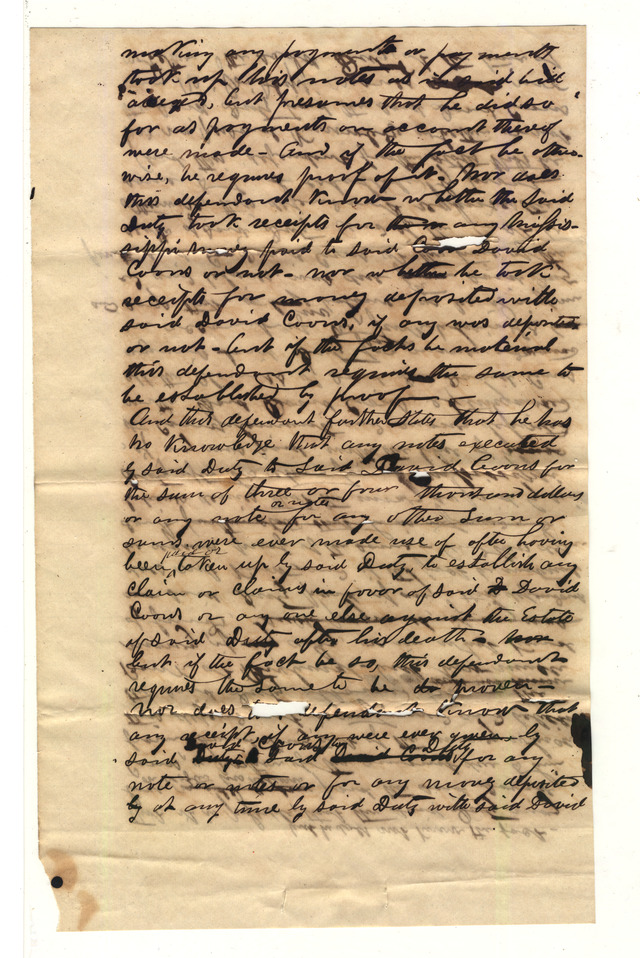 making any payments or payments
took up his notes as said had
alleged, but presumes that he did so
far as payments on account thereof
were made - And if the fact be other-
wise, he requires proof of it - Nor does
this defendant know whether the said
Duty took receipts for any Missis-
sippi money paid to said David
Coons or not - nor whether he took
receipts for money deposited with
said David Coons, if any was deposited
or not - but if the facts be material
this defendant requires the same to
be established by proof -
And this defendant further states that he has
no knowledge that any notes executed
by said Duty to said David Coons for
the sum of three or four thousand dollars
or any note or notes for any other sum or
sums were ever made use of after having
been paid or taken up by said Duty, to establish any
claim or claims in favor of said David
Coons or any one else against the Estate
of said Duty after his death -
but if the fact be so, this defendant
requires the same to be proven -
nor does defendant know that
any receipt, if any were ever given by
said David Coons to said Duty for any
note or notes or for any money deposited
by at any time by said Duty with said David